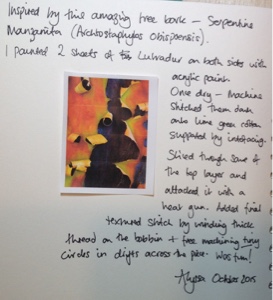 Inspired by this amazing tree bark – Serpentine
Manzanita (Arctostaphylos Obispoensis).
I painted 2 sheets of Lutradur on both sides with
acrylic paint.
Once dry – machine
stitched them down
onto lime green cotton
supported by interfacing.
Sliced through some of
the top layer and
attacked it with a
heat gun. Added final
textured stitch by winding thick
thread on the bobbin + free machining tiny
circles in clefts across the piece. Was fun!
October 2015